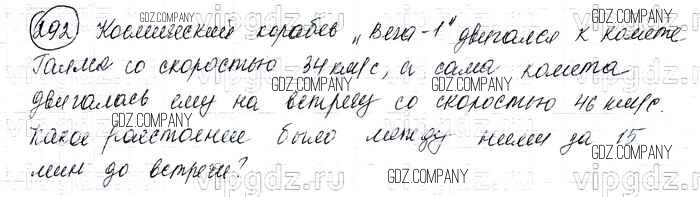 292 Космический корабль „Вега-1" двигался к комете
Галлея со скоростью 34 км/с, а сама комета
двигалась ему на встречу со скоростью 46 км/с.
Какое расстояние было между ними за 15
мин до встречи?
GDZ.COMPANY
GDZ.COMPANY
GDZ.COMPANY
GDZ.COMPANY
GDZ.COMPANY
GDZ.COMPANY
GDZ.COMPANY
vipgdz.ru
vipgdz.ru